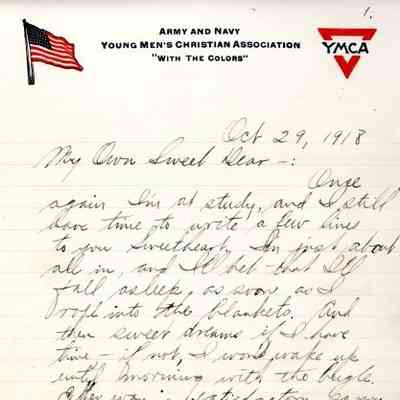 1.
ARMY AND NAVY
YOUNG MEN'S CHRISTIAN ASSOCIATION
"WITH THE COLORS"
YMCA
Oct 29, 1918
My Own Sweet Dear —:
Once
again I'm at study, and I still
have time to write a few lines
to you sweetheart. I'm just about
all in, and I'll bet that I'll
fall asleep, as soon as I
roll into the blankets. And
then sweet dreams if I have
time — if not, I won't wake up
until morning with the bugle.
satisfactory